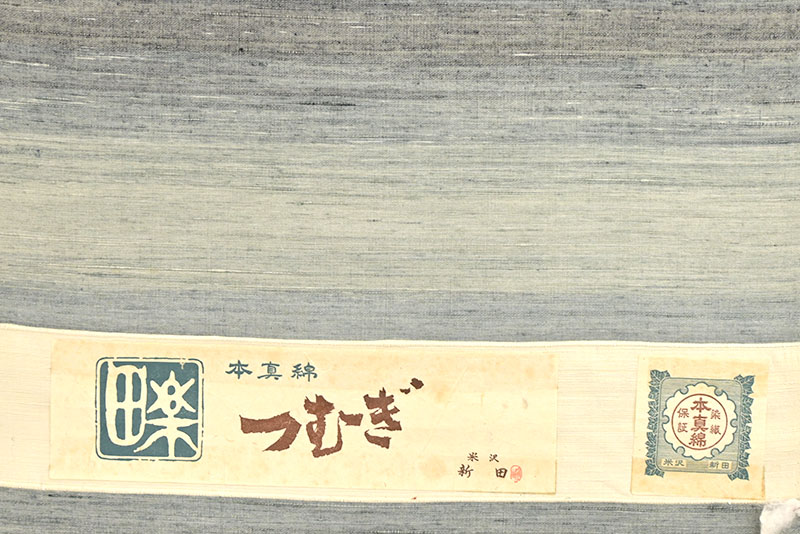 本真綿
つむぎ
米沢
新田
染織
本真綿
保証
米沢 新田